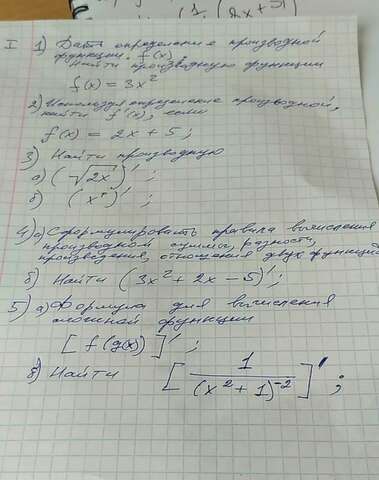 (1. (2x+5)
I 1) Дать определение производной
функции f(x)
Найти производную функции
f(x) = 3x²
2) Используя определение производной,
найти f'(x), если
f(x) = 2x + 5;
3) Найти производную
а) (√2x)';
б) (x⁵)';
4) а) Сформулировать правила вычисления
производной суммы, разности,
произведения, отношения двух функций
б) Найти (3x² + 2x - 5)';
5) а) Формула для вычисления
сложной функции
[f(g(x))]';
в) Найти [1/(x² + 1)⁻²]';